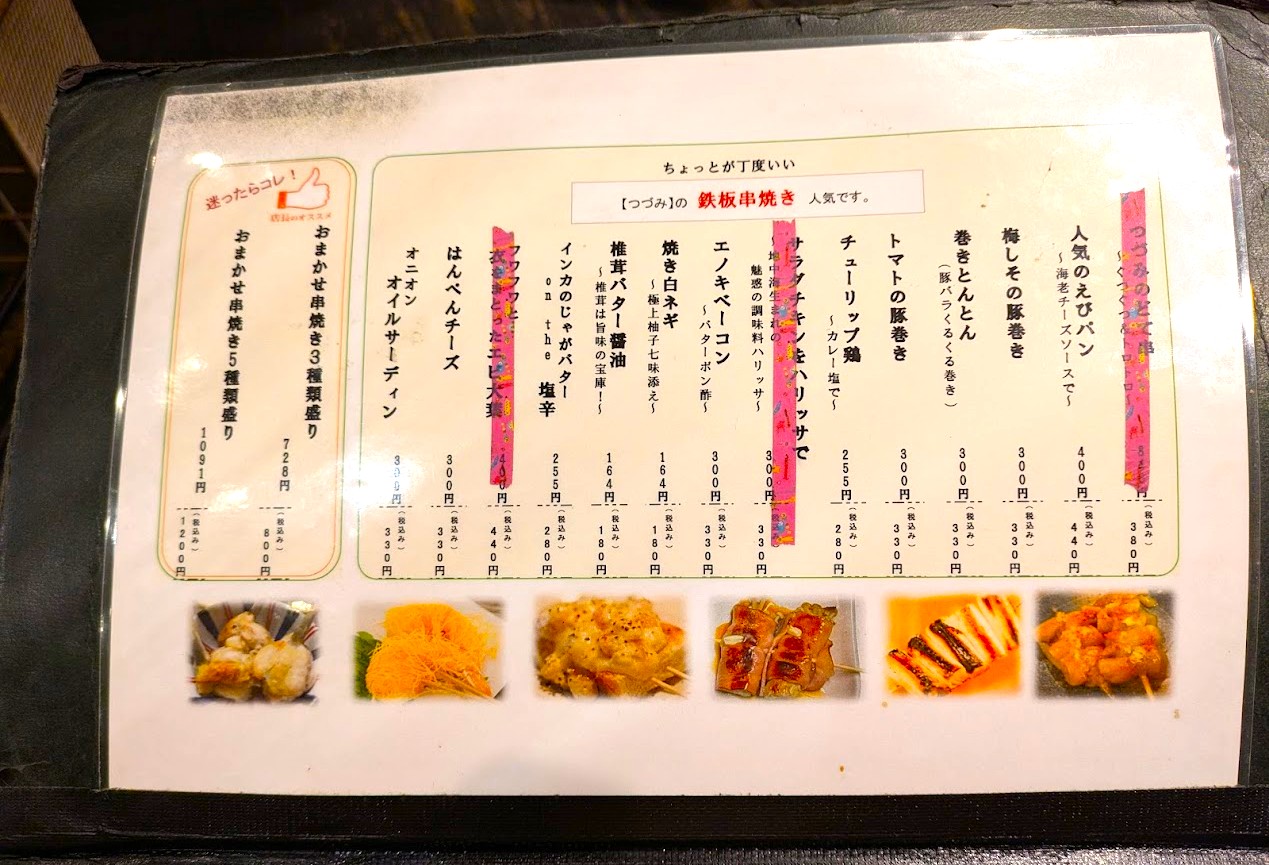 ちょっとが丁度いい
【つづみ】の 鉄板串焼き 人気です。
つづみのどて串
(税込み)
380円
人気のえびパン
～海老チーズソースで～
400円
(税込み)
440円
梅しその豚巻き
300円
(税込み)
330円
巻きとんとん
(豚バラくるくる巻き)
300円
(税込み)
330円
トマトの豚巻き
300円
(税込み)
330円
チューリップ鶏
～カレー塩で～
255円
(税込み)
280円
サラダチキンをハリッサで
～地中海生まれの
魅惑の調味料ハリッサ～
300円
(税込み)
330円
エノキベーコン
～バターポン酢～
300円
(税込み)
330円
焼き白ネギ
～極上柚子七味添え～
164円
(税込み)
180円
椎茸バター醤油
～椎茸は旨味の宝庫！～
164円
(税込み)
180円
インカのじゃがバター
on the 塩辛
255円
(税込み)
280円
フワフワと
衣をまとったエビ大葉
400円
(税込み)
440円
はんぺんチーズ
300円
(税込み)
330円
オニオン
オイルサーディン
300円
(税込み)
330円
迷ったらコレ！
店長のオススメ
おまかせ串焼き3種類盛り
728円
(税込み)
800円
おまかせ串焼き5種類盛り
1091円
(税込み)
1200円